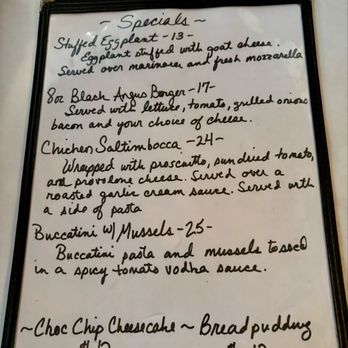 ~ Specials ~
Stuffed Eggplant - 13 -
Eggplant stuffed with goat cheese.
Served over marinara and fresh mozzarella
8oz Black Angus Burger - 17 -
Served with lettuce, tomato, grilled onions
bacon and your choice of cheese.
Chicken Saltimbocca - 24 -
Wrapped with proscuitto, sundried tomato,
and provolone cheese. Served over a
roasted garlic cream sauce. Served with
a side of pasta
Buccatini w/ Mussels - 25 -
Buccatini pasta and mussels tossed
in a spicy tomato vodka sauce.
~ Choc Chip Cheesecake ~ Bread pudding